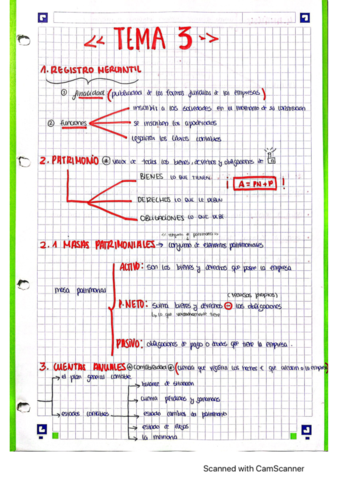 << TEMA 3 >>
1. REGISTRO MERCANTIL
① finalidad (publicidad de las formas jurídicas de las empresas)
inscribir a las sociedades en el momento de su constitución
② funciones
se inscriben los apoderados
legalizan los libros contables
2. PATRIMONIO valor de todos los bienes, derechos y obligaciones de
BIENES LO QUE TIENEN
! A = PN + P !
DERECHOS LO QUE LE DEBEN
OBLIGACIONES LO QUE DEBE
2.1 MASAS PATRIMONIALES → conjunto de elementos patrimoniales
ACTIVO: son los bienes y derechos que posee la empresa
masa patrimonial
(recursos propios)
P. NETO: suma bienes y derechos ⊖ las obligaciones
↳ lo que verdaderamente tiene
PASIVO: obligaciones de pago o deudas que tiene la empresa.
3. CUENTAS ANUALES contabilidad (ciencia que registra los hechos € que afectan a la empresa)
el plan general contable
balance de situación
cuenta pérdidas y ganancias
estados contables
estado cambios en patrimonio
estado de flujos
la memoria
Scanned with CamScanner